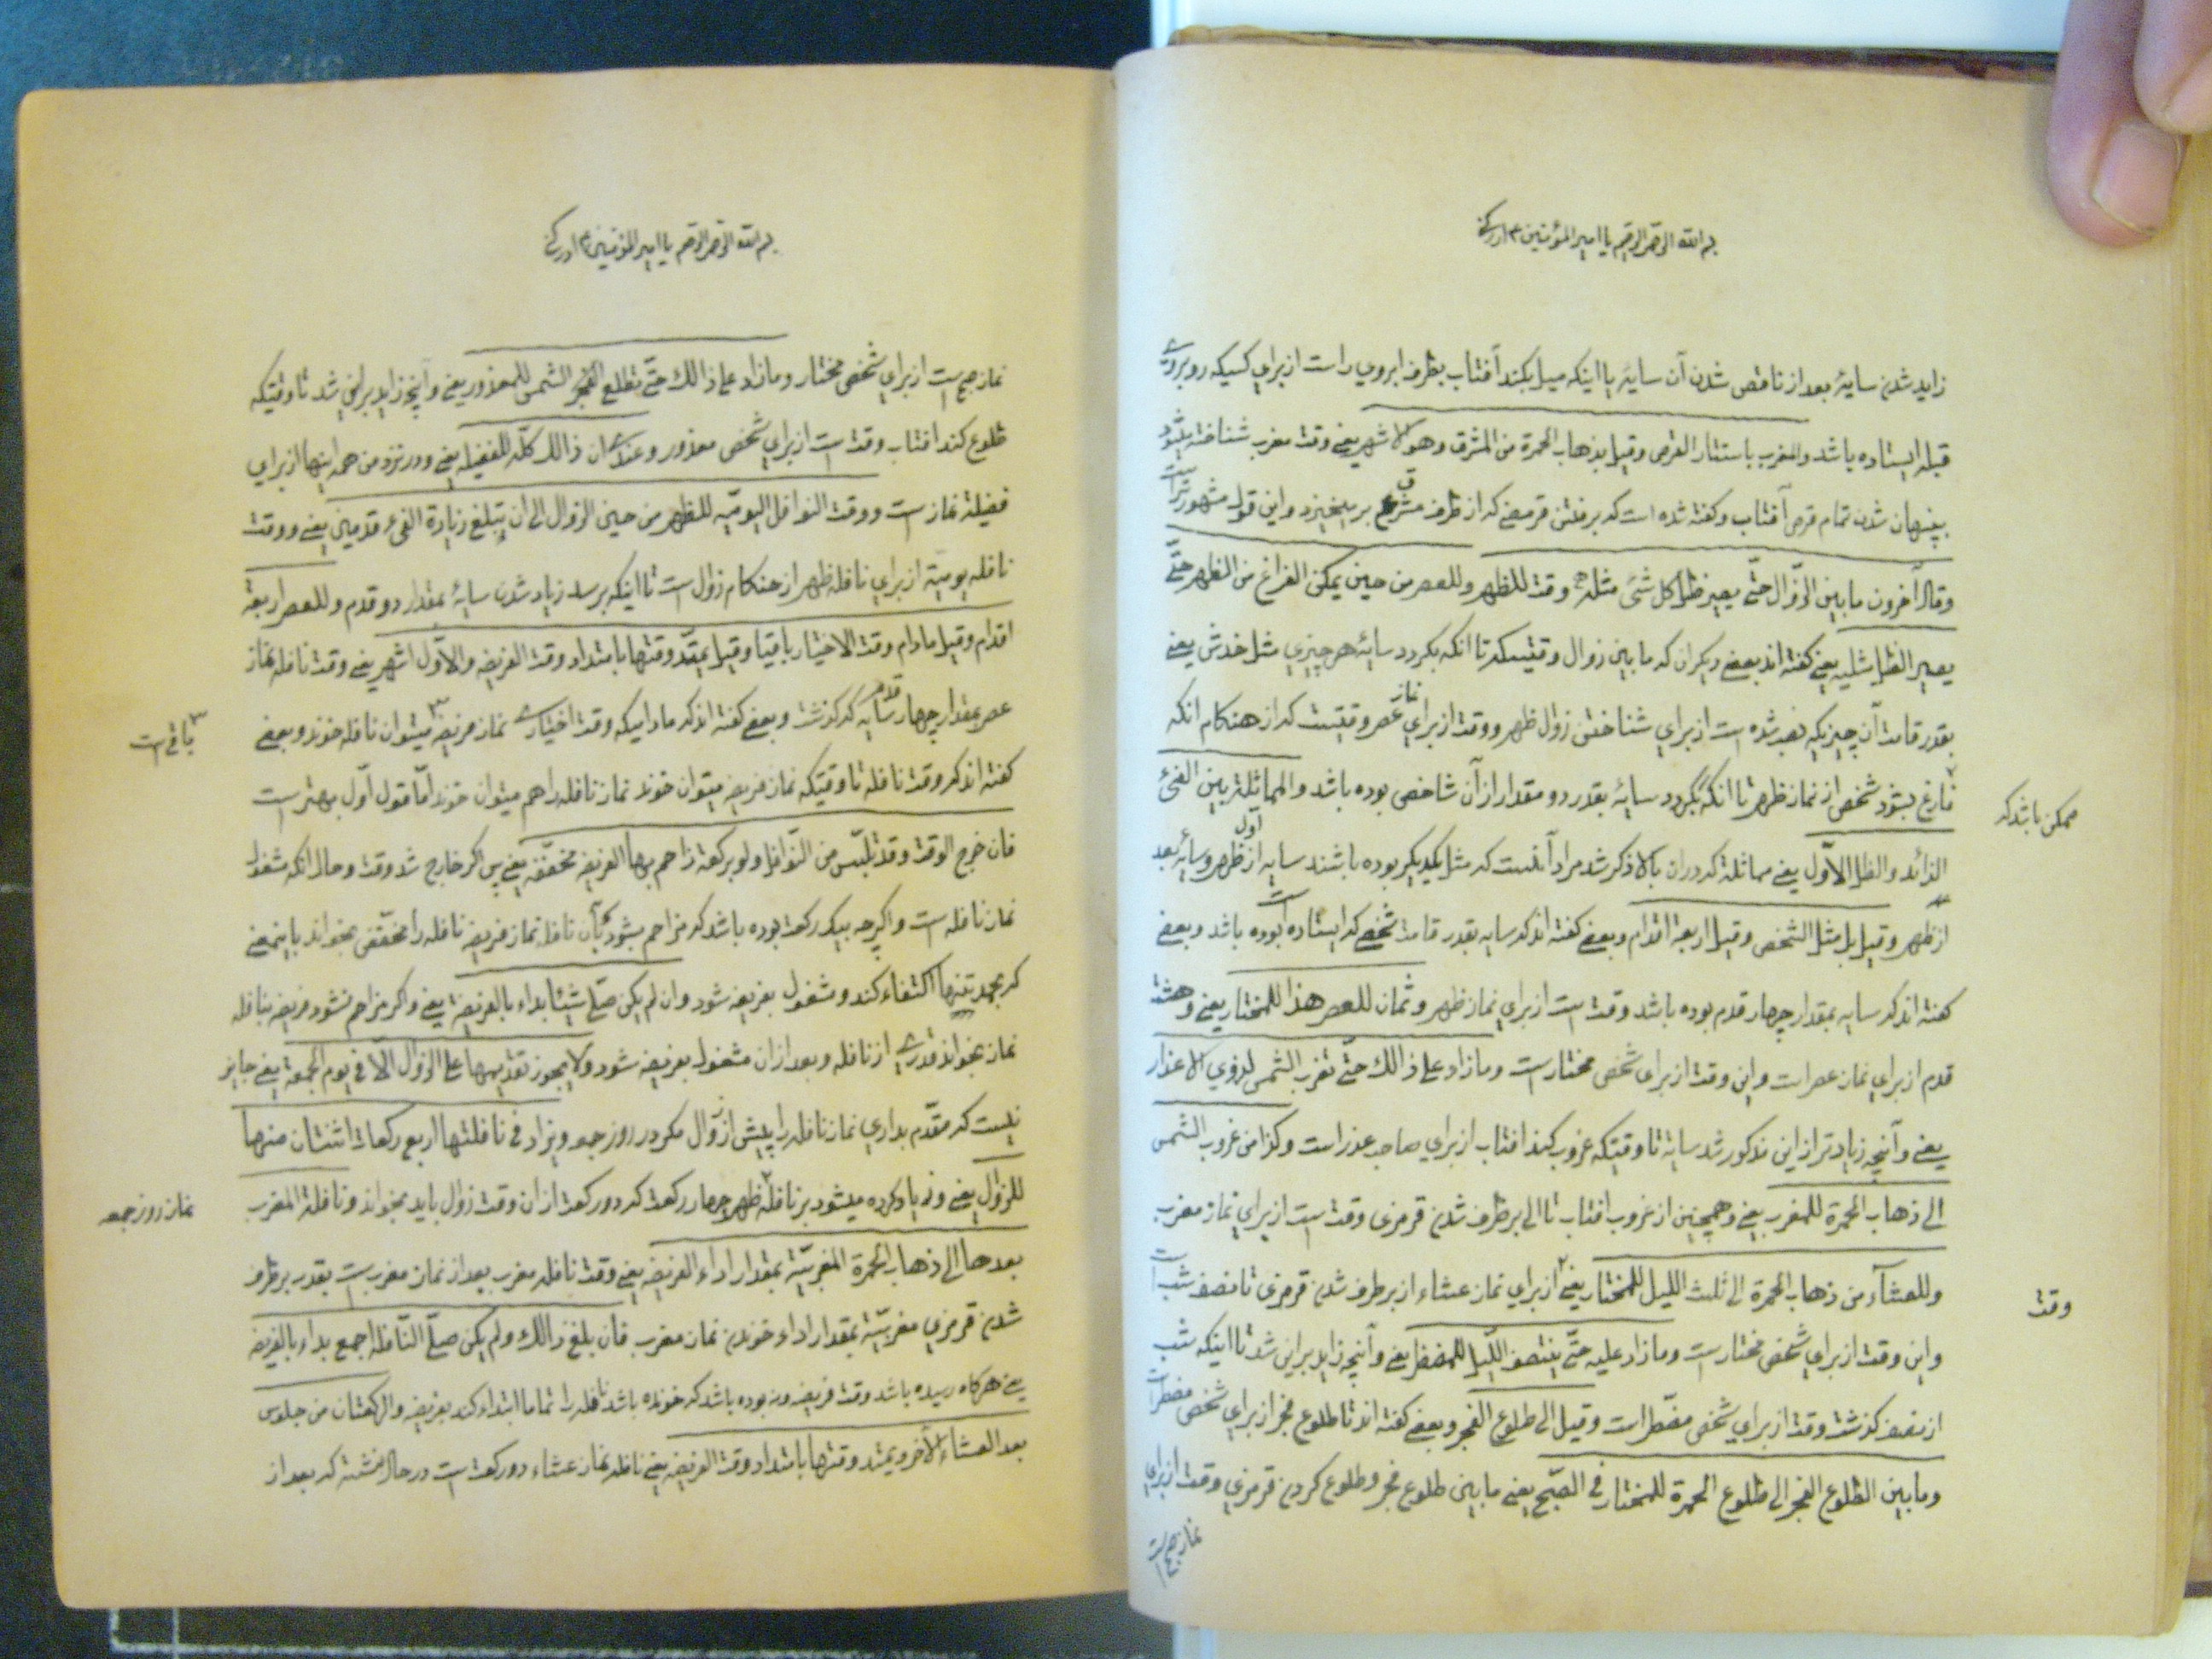 بسم الله الرحمن الرحیم یا امیرالمؤمنین ع ادرکنی
زاید شدن سایهٔ بعد از ناقص شدن آن سایهٔ یا اینکه میل بکند آفتاب بطرف ابروي راست از براي کسیکه روبروی
قبله ایستاده باشد والمغرب باستتار القرص وقیل بذهاب الحمرة من المشرق وهو الاشهر یعنے وقت مغرب شناخته میشود
بپنهان شدن تمام قرص آفتاب وکفته شده است که برفتن قرمضے که از طرف مشرق بر میخیزد واین قول مشهورتر است
وقال آخرون ما بین الزّوال حتّے یصیر ظل کل شئ مثله وقت للظهر وللعصر من حین یمکن الفراغ من الظهر حتّے
یصیر الظل مثلیه یعنے کفته اند بعضے دیکران که ما بین زوال وقتیست که تا انکه بکردد سایهٔ هر چیزي مثل خدش یعنے
بقدر قامت آن چیزیکه نصب شده است از براي شناختن زوال ظهر ووقت از براي نماز عصر وقتیست که از هنکام انکه
ممکن باشد که
فارغ بشود شخص از نماز ظهر تا انکه بکردد سایهٔ بقدر دو مقدار از آن شاخص بوده باشد والمماثلة بین الفئ
الزائد والظل الاوّل یعنے مماثلة که در ان بالا ذکر شد مراد آنست که مثل یکدیکر بوده باشند سایه اوّل از ظهر وسایهٔ بعد
از ظهر وقیل بل مثل الشخص وقیل اربعة اقدام وبعضے کفته اند که سایه بقدر قامت شخصے که ایستاده است بوده باشد وبعضے
کفته اند که سایه بمقدار چهار قدم بوده باشد وقت است از براي نماز ظهر وثمان للعصر هذا للمختار یعنے وهشت
قدم از براي نماز عصر است واین وقت از براي شخص مختار است وما زاد علے ذالك حتّے تغرب الشمس لذوي الاعذار
یعنے وآنچه زیادتر از این مذکور شد سایهٔ تا وقتیکه غروب کند افتاب از براي صاحب عذر است وکذا من غروب الشمس
الے ذهاب الحمرة للمغرب یعنے وهمچنین از غروب افتاب تا الے بر طرف شدن قرمزی وقت است از براي نماز مغرب
وللعشآء من ذهاب الحمرة الے ثلث اللیل للمختار یعنے وقت از براي نماز عشاء از بر طرف شدن قرمزی تا نصف شب است
واین وقت از براي شخص مختار است وما زاد علیه حتّے ینتصف اللّیل للمضطر یعنے وآنچه زاید بر این شد تا اینکه شب
از نصف کذشت وقت از براي شخص مضطر است وقیل الے طلوع الفجر وبعضے کفته اند تا طلوع فجر از براي شخص مضطر است
وما بین الطلوع الفجر الے طلوع الحمرة للمختار فے الصبح یعنے ما بین طلوع فجر وطلوع کردن قرمزي وقت از براي
نماز صبح است
بسم الله الرحمن الرحیم یا امیرالمؤمنین ع ادرکنی
نماز صبح است از براي شخص مختار وما زاد علے ذالك حتّے تطلع الشمس للمعذور یعنے وآنچه زاید بر این شد تا وقتیکه
طلوع کند افتاب وقت است از براي شخص معذور وعندے ان ذالك کلّه للفضیلة یعنے ودر نزد من همه اینها از براي
فضیلة نماز است ووقت النوافل الیومیّه للظهر من حین الزوال الے ان یبلغ زیادة الفئ قدمین یعنے ووقت
نافله یومیّة از براي نافله ظهر از هنکام زوال است تا اینکه برسد زیاد شدن سایهٔ بمقدار دو قدم وللعصر اربعة
اقدام وقیل مادام وقت الاختیار باقیا وقیل یمتدّ وقتها بامتداد وقت الفریضه والاوّل اشهر یعنے وقت نافله نماز
عصر بمقدار چهار قدم سایه که کذشت وبعضے کفته اند که مادامیکه وقت اختیاری نماز فریضه باقی است میتوان نافله خوند وبعضے
کفته اند که وقت نافله تا وقتیکه نماز فریضه میتوان خوند نماز نافله را هم میتوان خوند امّا قول اوّل بهتر است
فان خرج الوقت وقد تلبّس من النّوافل ولو برکعة زاحم بها الفریضه مخفّفة یعنے پس اکر خارج شد وقت وحال انکه مشغول
نماز نافله است واکرچه بیك رکعت بوده باشد که مزاحم بشود بآن نافله نماز فریضه نافله را مخفّف بخواند باینمعنے
که بحمد تنها اکتفاء کند ومشغول بفریضه شود وان لم یکن صلّے شیئا بداء بالفریضة یعنے واکر مزاحم نشود فریضه بنافله
نماز بخواند قدرے از نافله وبعد از ان مشغول بفریضه شود ولا یجوز تقدیمها علے الزوال الّا فے یوم الجمعه یعنے جایز
نیست که مقدّم بداري نماز نافله را پیش از زوال مکر در روز جمعه ویزاد فے نافلتها اربع رکعات اثنتان منها
للزوال یعنے وزیاد کرده میشود بر نافلهٔ ظهر نماز روز جمعه چهار رکعت که دو رکعت از ان وقت زوال باید بخواند ونافلة المغرب
بعدها الے ذهاب الحمرة المغربیّة بمقدار اداء الفریضه یعنے وقت نافله مغرب بعد از نماز مغرب است بقدر بر طرف
شدن قرمزي مغربیّة بمقدار اداء خوندن نماز مغرب فان بلغ ذالك ولم یکن صلّے النّافله اجمع بداء بالفریضه
یعنے هر کاه رسیده باشد وقت فریضه ونه بوده باشد که خونده باشد نافله را تماما ابتداء کند بفریضه والرکعتان من جلوس
بعد العشاء الآخر ویمتد وقتها بامتداد وقت الفریضه یعنے نافله نماز عشاء دو رکعت است در حال نشسته که بعد از